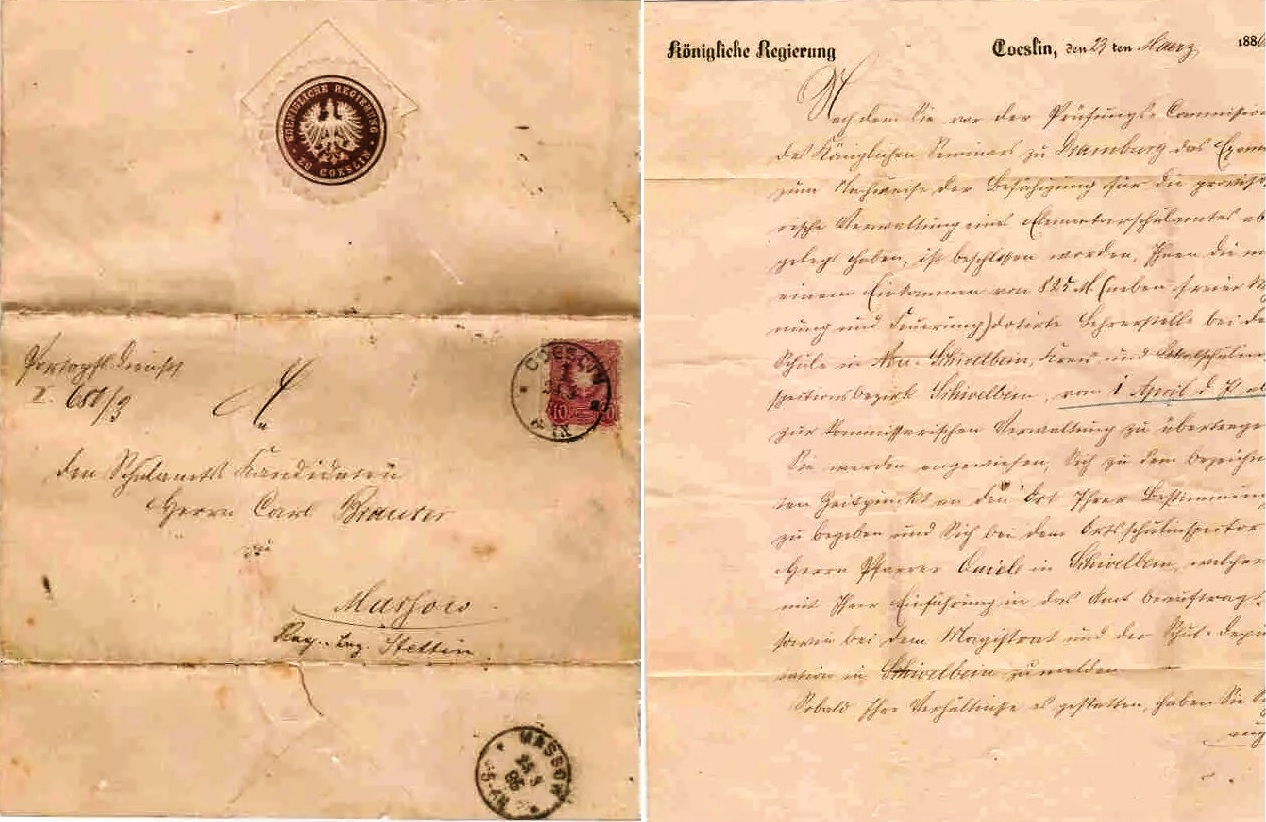 KOENIGLICHE REGIERUNG
ZU COESLIN
Portopfl. Diensts
I. 651/3
COESLIN
10
An
den Schulamts Kandidaten
Herrn Carl
zu
Massow
Reg. Bez. Stettin
MASSOW
Königliche Regierung
Coeslin, den 23 ten Maerz 188
Nachdem Sie vor der Prüfungs-Commission
des Königlichen Seminars zu Dramburg das Exam
zum Nachweise der Befähigung für die proviso
rische Verwaltung eines Elementarschulamtes ab
gelegt haben, ist beschlossen worden, Ihnen die m
einem Einkommen von 825 M. (neben freier W
nung und Feuerung) dotirte Lehrerstelle bei de
Schule in Neu-Schivelbein, Kreis und Lokalschulin
spektionsbezirk Schivelbein, vom 1 April d. J. ab
zur kommissarischen Verwaltung zu übertrage
Sie werden angewiesen, Sich zu dem bezeichn
ten Zeitpunkt an den Ort Ihrer Bestimmun
zu begeben und Sich bei dem Ortsschulinspektor
Herrn Pfarrer in Schivelbein, welcher
mit Ihrer Einführung in das Amt beauftragt,
sowie bei dem Magistrat und der Schul-Depu
tation in Schivelbein zu melden
Sobald Ihre Verhältnisse es gestatten, haben Sie